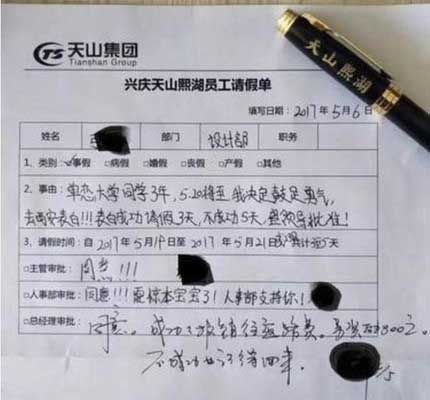 天山集团
Tianshan Group
天山熙湖
兴庆天山熙湖员工请假单
填写日期：2017年5月6日
姓名 部门 设计部 职务
1. 类别：事假 □病假 □婚假 □丧假 □产假 □其他
2. 事由：单恋大学同学3年，5.20将至 我决定鼓足勇气，
去西安表白!!!表白成功请假3天，不成功5天，望领导批准！
3. 请假时间：自2017年5月19日至2017年5月21日或 计 天
□主管审批： 同意!!!
□人事部审批： 同意!!! 本宝宝了！人事部支持你！
□总经理审批： 同意。成功了报销往返路费。 800元。
不成功 回来。